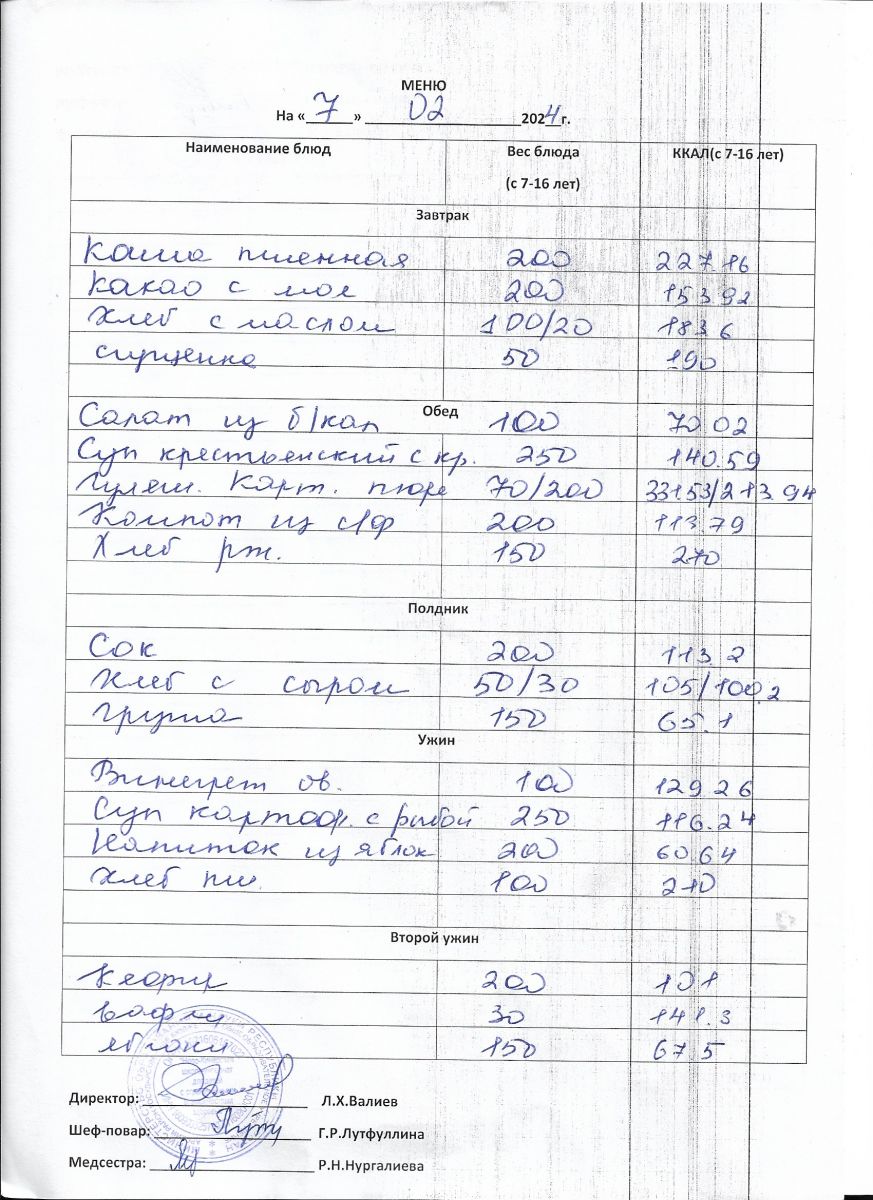 МЕНЮ
На « 7 » 02 2024 г.
Наименование блюд Вес блюда (с 7-16 лет) ККАЛ(с 7-16 лет)
Завтрак
Каша пшенная 200 227.16
Какао с мол 200 153.92
Хлеб с маслом 100/20 183.6
сгущенка 50 190
Обед
Салат из б/кап 100 72.02
Суп крестьянский с кр. 250 140.59
Гуляш. Карт. пюре 70/200 331.53/213.94
Компот из с/ф 200 113.79
Хлеб рж. 150 270
Полдник
Сок 200 113.2
Хлеб с сыром 50/30 105/100,2
груша 150 65.1
Ужин
Винегрет ов. 100 129.26
Суп картоф. с рыбой 250 116.24
Напиток из яблок 200 60.64
Хлеб пш. 100 210
Второй ужин
Кефир 200 101
вафли 30 141.3
яблоки 150 67.5
Директор: Л.Х.Валиев
Шеф-повар: Г.Р.Лутфуллина
Медсестра: Р.Н.Нургалиева